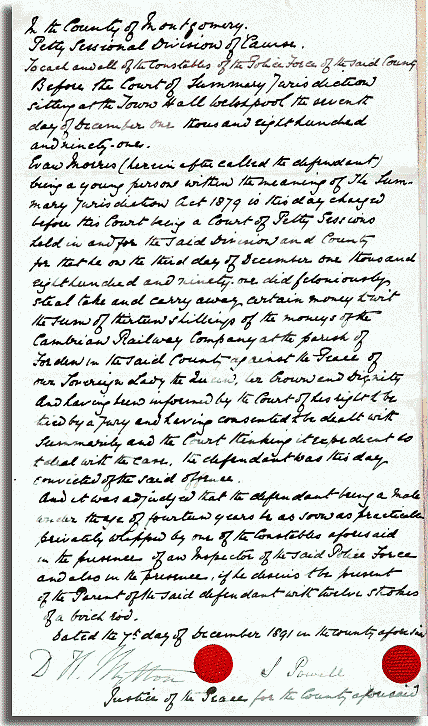 In the County of Montgomery.
Petty Sessional Division of Cawse.
To each and all of the Constables of the Police Force of the said County
Before the Court of Summary Jurisdiction
sitting at the Town Hall Welshpool the seventh
day of December one thousand eight hundred
and ninety-one.
Evan Morris (herein after called the defendant)
being a young person within the meaning of The Sum-
mary Jurisdiction Act 1879 is this day charged
before this Court being a Court of Petty Sessions
held in and for the said Division and County
for that he on the third day of December one thousand
eight hundred and ninety-one did feloniously
steal take and carry away certain money to wit
the sum of thirteen shillings of the moneys of the
Cambrian Railway Company at the parish of
Forden in the said County against the Peace of
our Sovereign Lady the Queen, her Crown and Dignity
And having been informed by the Court of his right to be
tried by a Jury and having consented to be dealt with
summarily and the Court thinking it expedient so
to deal with the case, the defendant was this day
convicted of the said offence.
And it was adjudged that the defendant being a male
under the age of fourteen years be as soon as practicable
privately whipped by one of the Constables aforesaid
in the presence of an Inspector of the said Police Force
and also in the presence, if he desires to be present
of the Parent of the said defendant with twelve strokes
of a birch rod.
Dated the 7th day of December 1891 in the county aforesaid
D. H. Mytton
S Powell
Justice of the Peace for the County aforesaid